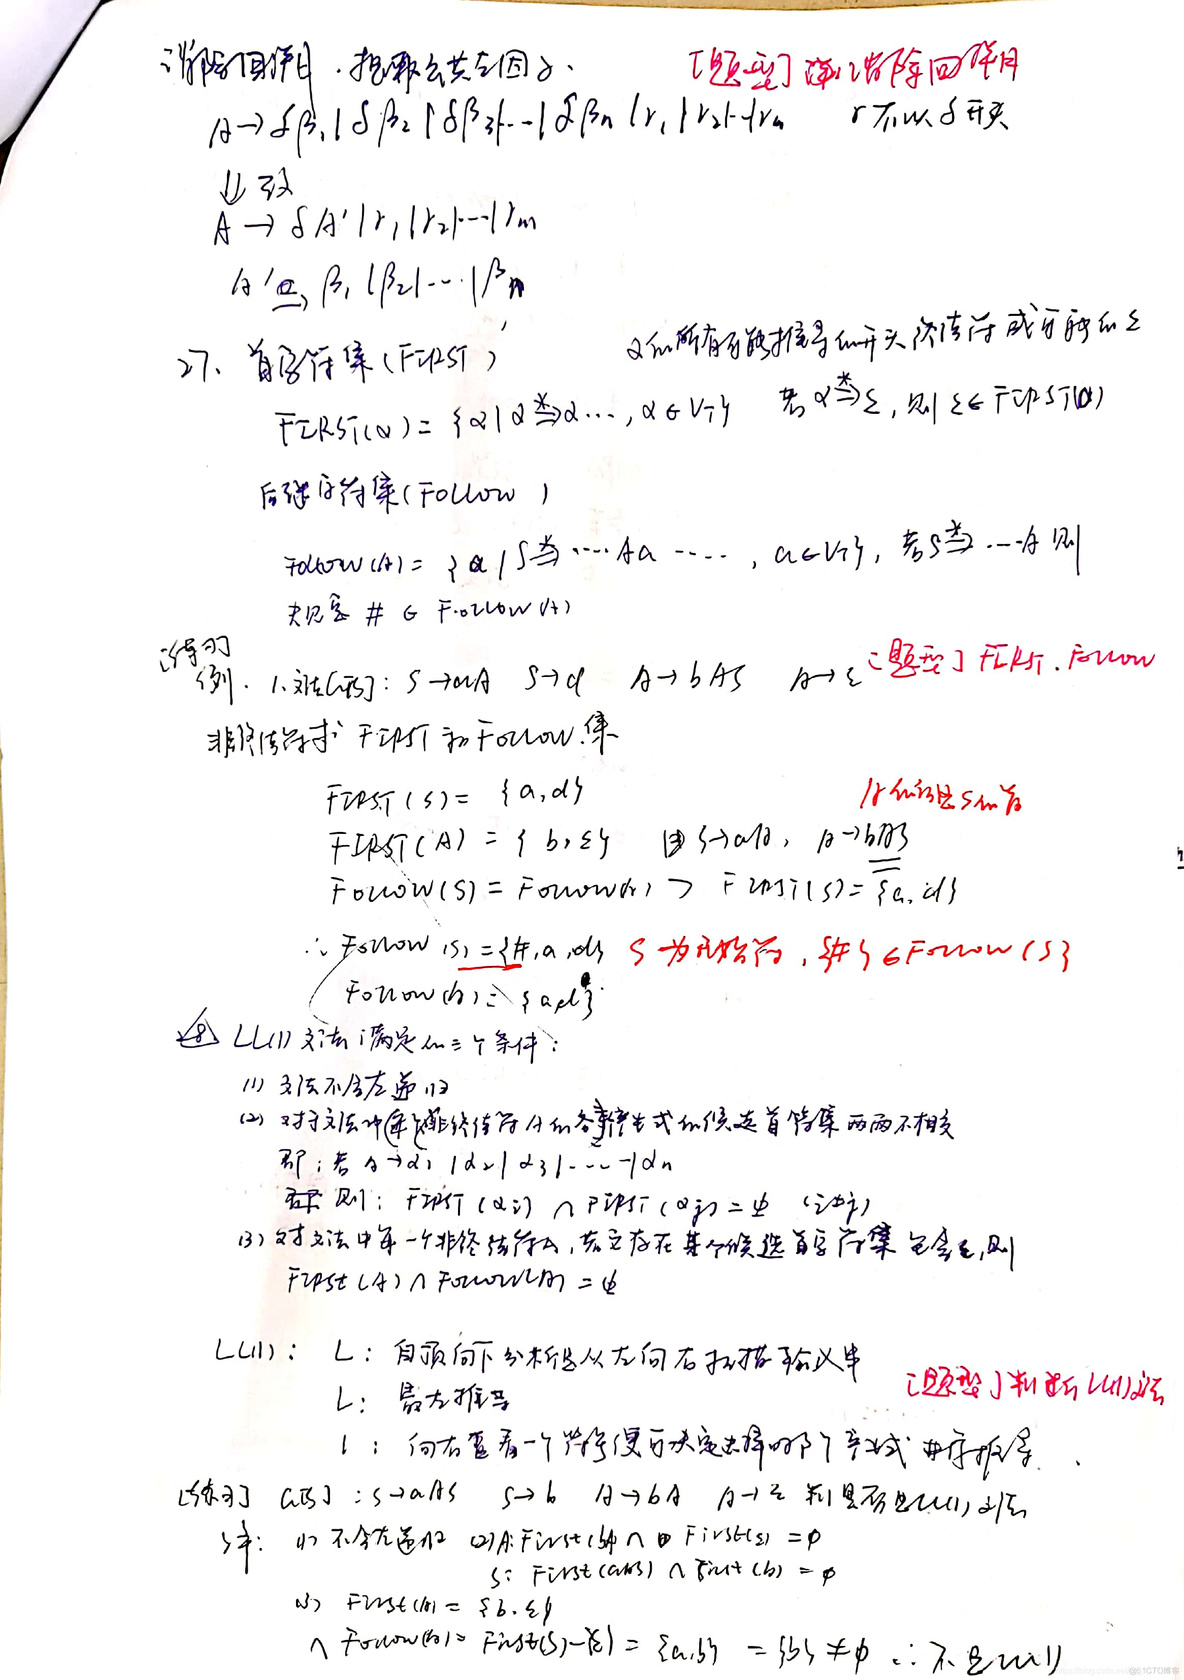 消除回溯,提取公共左因子. [题型] 消除回溯
A → δβ₁|δβ₂|δβ₃|…|δβn|r₁|r₂|…|rm r不以δ开头
⇓ 改
A → δA'|r₁|r₂|…|rm
A' → β₁|β₂|…|βn
27、首字符集(FIRST) α的所有可能推导的开头终结符或可能的ε
FIRST(α) = {a|α ⇒* a…, a∈VT} 若α ⇒* ε, 则 ε∈FIRST(α)
后继字符集(Follow)
Follow(A) = {a|S ⇒* …Aa…, a∈VT}, 若S ⇒* …A 则
规定 # ∈ Follow(A)
[练习]
例. 1.文法G[S]: S→aA S→d A→bAS A→ε [题型] FIRST. Follow
非终结符求 FIRST 和 Follow 集
FIRST(S) = {a,d}
FIRST(A) = {b,ε} 由S→aA, A→bAS
Follow(S) = Follow(A) ⊃ FIRST(S) = {a,d}
∴ Follow(S) = {#,a,d} S为开始符, {#}∈Follow(S)
Follow(A) = {a,d}
28 LL(1)文法满足的三个条件:
(1) 文法不含左递归
(2) 对于文法中每个非终结符A的各产生式的候选首符集两两不相交
即: 若A→α₁|α₂|α₃|…|αn
则: FIRST(αi) ∩ FIRST(αj) = φ (i≠j)
(3) 对文法中每一个非终结符A, 若它存在某个候选首字符集包含ε, 则
First(A) ∩ Follow(A) = φ
LL(1): L: 自顶向下分析是从左向右扫描输入串
L: 最左推导 [题型] 判断LL(1)文法
1: 向右查看一个符号便可决定选择哪个产生式进行推导.
[练习] G[S]: S→aAS S→b A→bA A→ε 判是否是LL(1)文法
解: (1) 不含左递归 (2) A: First(bA) ∩ First(ε) = φ
S: First(aAS) ∩ First(b) = φ
(3) First(A) = {b.ε}
∩ Follow(A) = First(S)-{ε} = {a,b} = {b} ≠ φ ∴ 不是LL(1)
@51CTO博客